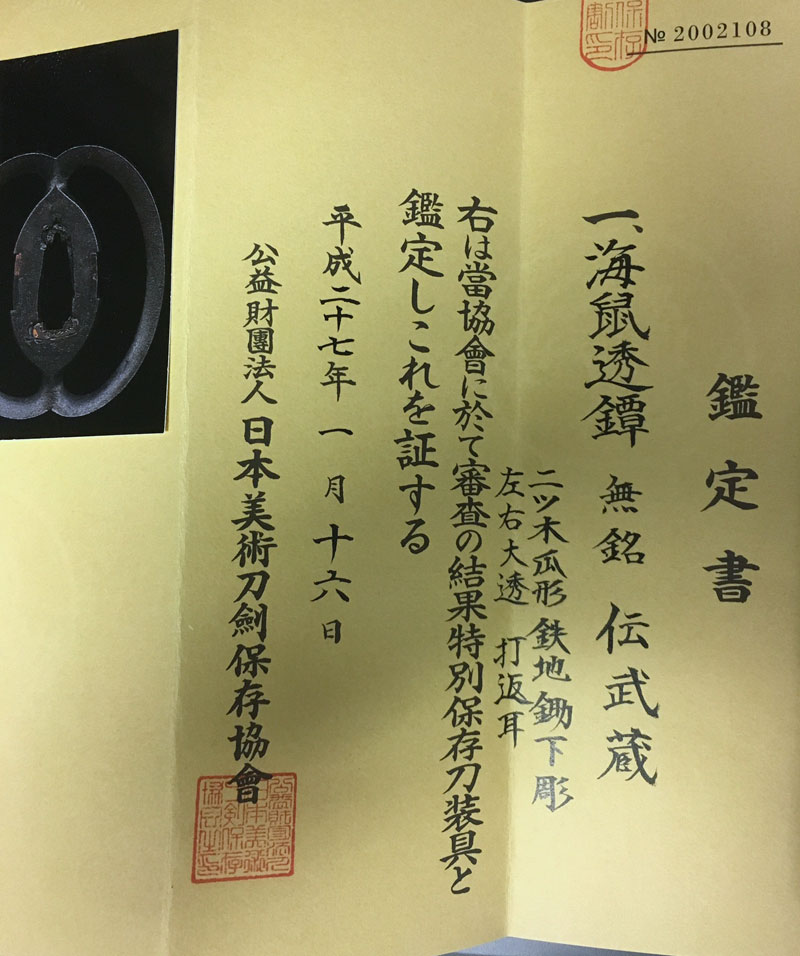 № 2002108
鑑定書
一、海鼠透鐔 無銘 伝武蔵
二ツ木瓜形 鉄地 鋤下彫
左右大透 打返耳
右は當協會に於て審査の結果特別保存刀装具と
鑑定しこれを証する
平成二十七年一月十六日
公益財團法人 日本美術刀劍保存協會